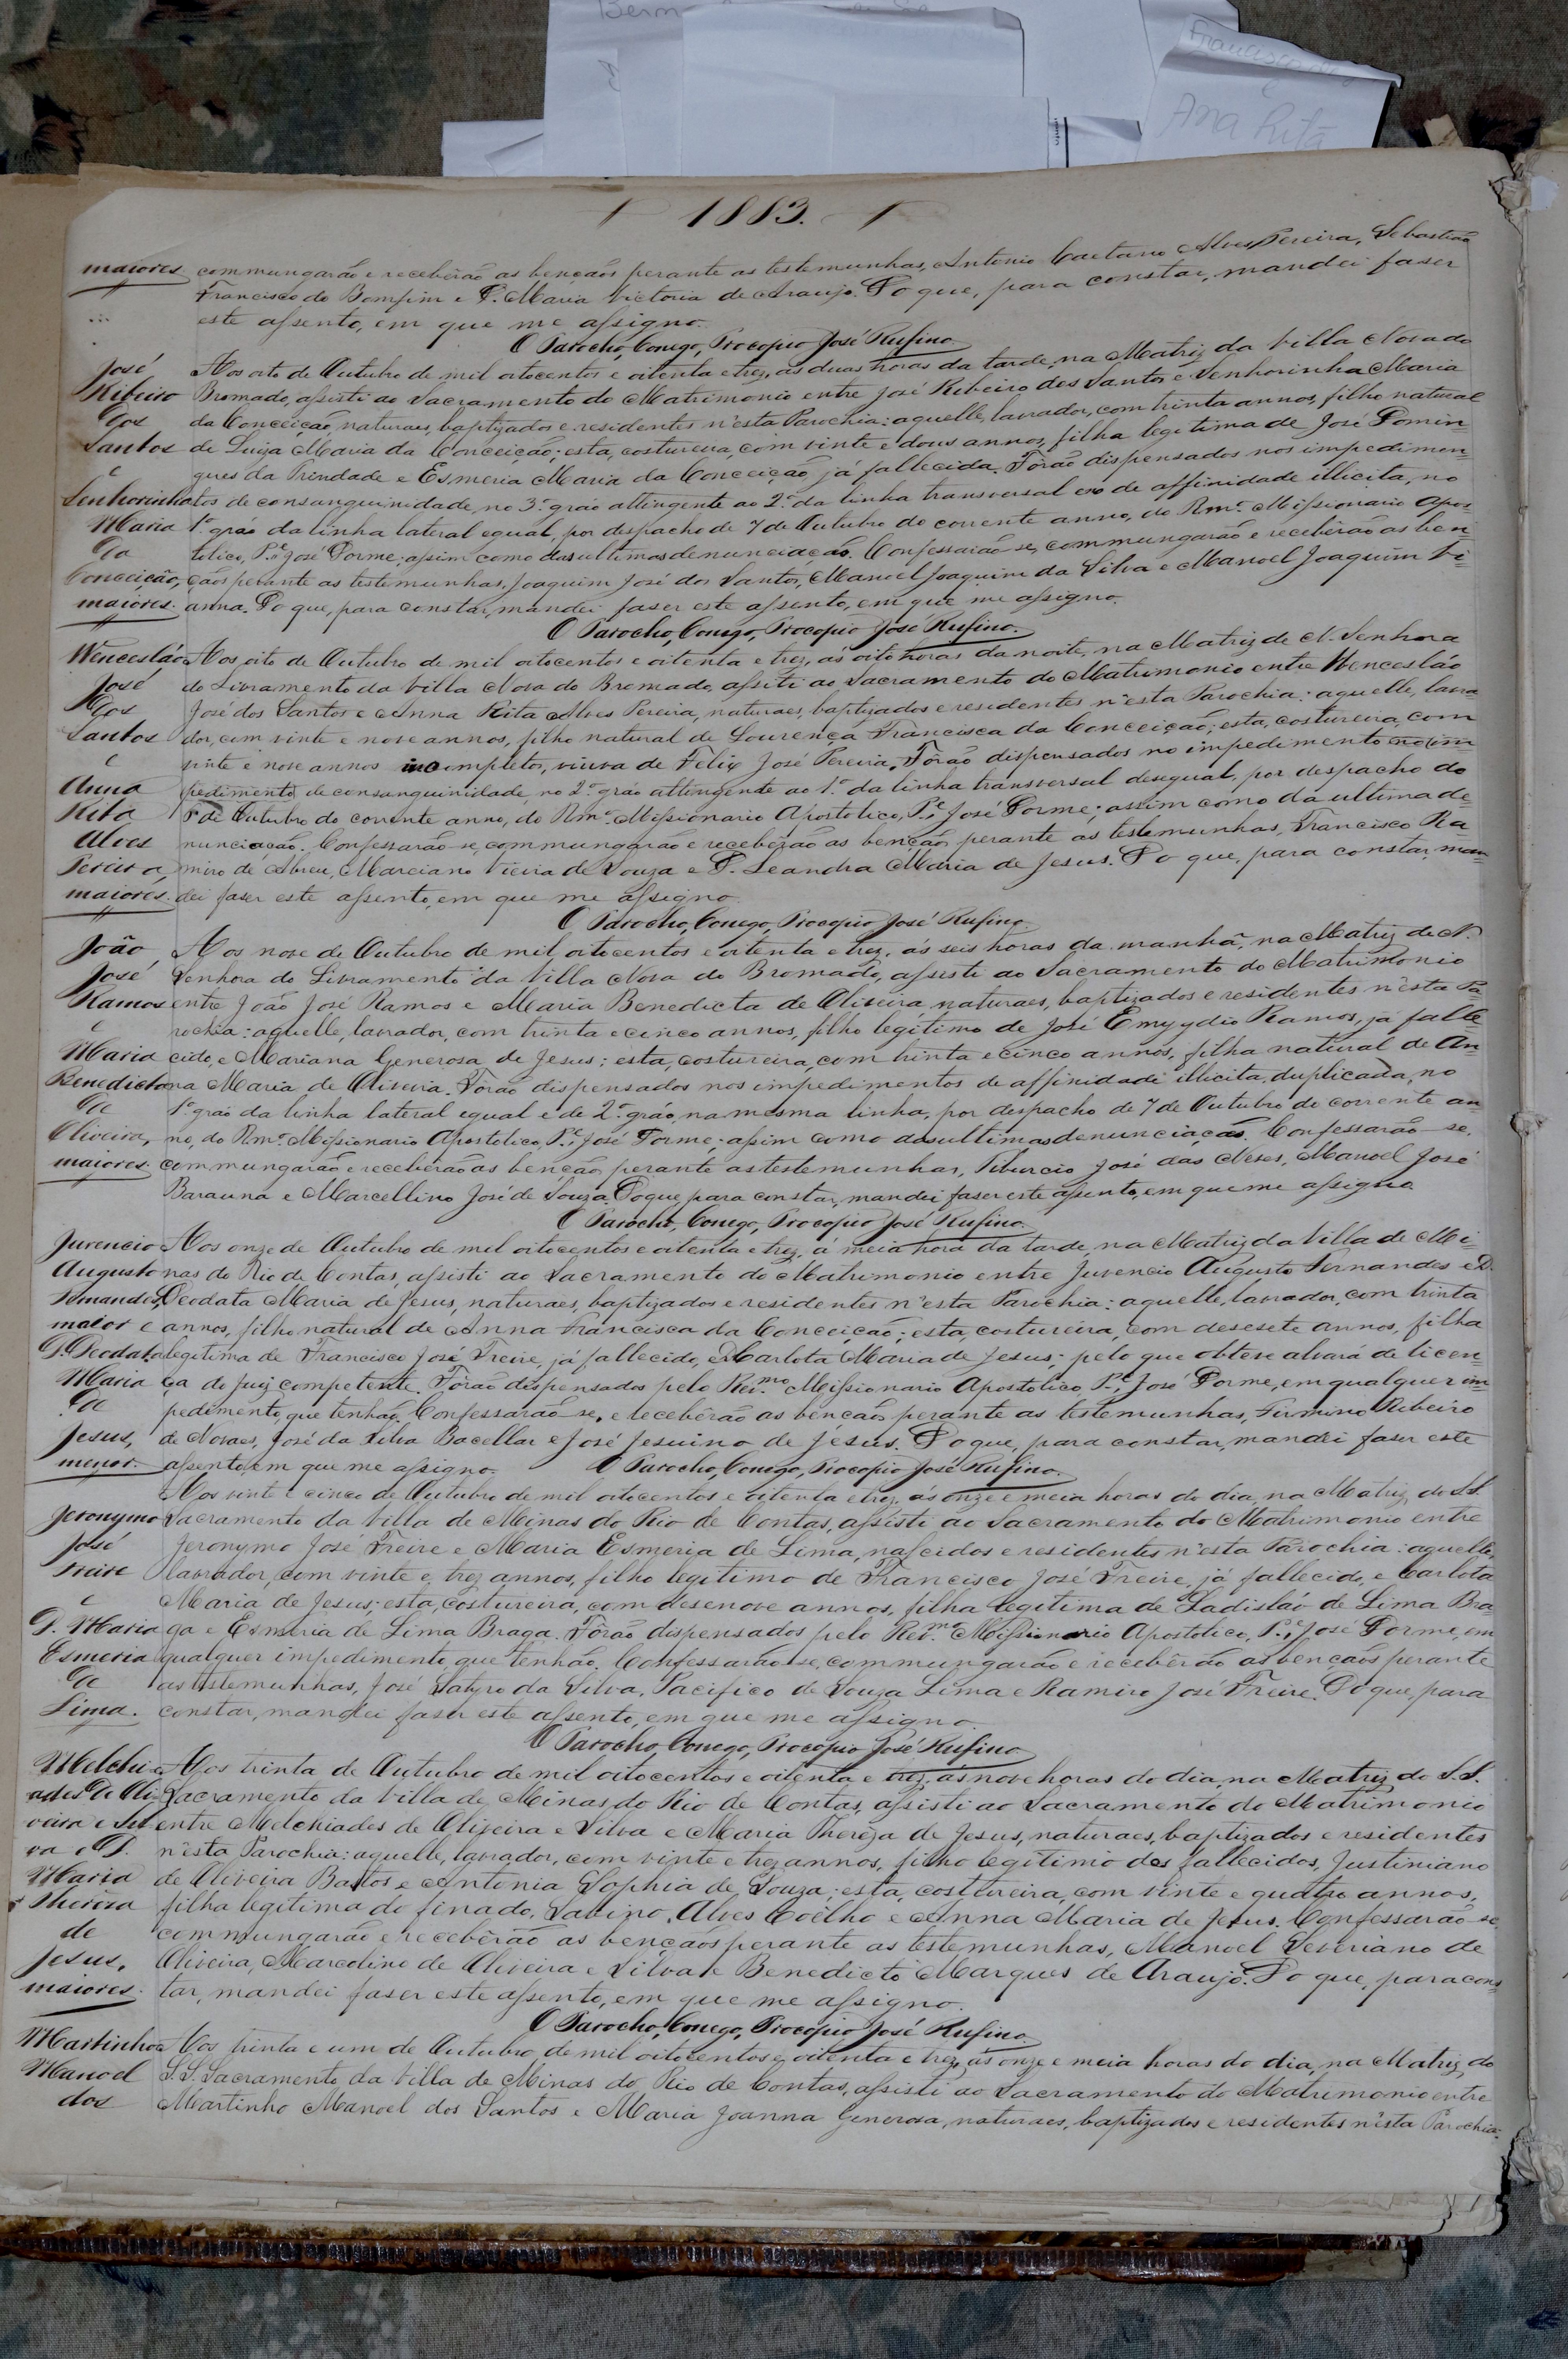 1883.
maiores commungarão e receberão as bençãos perante as testemunhas, Antonio Caetano Alves Pereira, Sebastião
Francisco do Bomfim e D. Maria Victoria de Araujo. Do que, para constar, mandei faser
este assento, em que me assigno.
O Parocho, Conego, Procopio José Rufino.
José Aos oito de Outubro de mil oitocentos e oitenta e trez, as duas horas da tarde, na Matriz da Villa Nova do
Ribeiro Bromado, assisti ao Sacramento do Matrimonio entre José Ribeiro dos Santos e Senhorinha Maria
dos da Conceição, naturaes, baptizados e residentes n'esta Parochia: aquelle, lavrador, com trinta annos, filho natural
Santos de Luiza Maria da Conceição; esta, costureira, com vinte e dous annos, filha legitima de José Domin-
e gues da Trindade e Esmeria Maria da Conceição já fallecida. Forão dispensados nos impedimen-
Senhorinha tos de consanguinidade, no 3.º gráo attingente ao 2.º da linha transversal e no de affinidade illicita, no
Maria 1.º gráo da linha lateral egual, por despacho de 7 de Outubro do corrente anno, do Rmº. Missionario Apos-
da tolico, P.e José Dorme; assim como das ultimas denunciaçãs. Confessarão-se, commungarão e receberão as ben-
Conceição, çãos perante as testemunhas, Joaquim José dos Santos, Manoel Joaquim da Silva e Manoel Joaquim Vi-
maiores. anna. Do que, para constar, mandei faser este assento, em que me assigno.
O Parocho, Conego, Procopio José Rufino.
Wencesláo Aos oito de Outubro de mil oitocentos e oitenta e trez, ás oito horas da noite, na Matriz de N. Senhora
José do Livramento da Villa Nova do Bromado, assiti ao Sacramento do Matrimonio entre Wencesláo
dos José dos Santos e Anna Rita Alves Pereira, naturaes, baptizados e residentes n'esta Parochia: aquelle, lavra-
Santos dor, com vinte e nove annos, filho natural de Lourença Francisca da Conceição; esta, costureira, com
e vinte e nove annos incompletos, viuva de Felix José Pereira. Forão dispensados no impedimento no im
Anna pedimento de consanguinidade, no 2.º gráo attingente ao 1.º da linha transversal desegual, por despacho do
Rita de Outubro do corrente anno, do Rmº. Missionario Apostolico, P.e José Dorme; assim como da ultima de-
Alves nunciação. Confessarão-se, commungarão e receberão as bençãos perante as testemunhas, Francisco Ra
Pereira, miro de Abreu, Marciano Vieira de Souza e D. Leandra Maria de Jesus. Do que, para constar, man-
maiores. dei faser este assento, em que me assigno.
O Parocho, Conego, Procopio José Rufino.
João Aos nove de Outubro de mil oitocentos e oitenta e trez, ás seis horas da manhã, na Matriz de N.
José Senhora do Livramento da Villa Nova do Bromado, assisti ao Sacramento do Matrimonio
Ramos entre João José Ramos e Maria Benedicta de Oliveira, naturaes, baptizados e residentes n'esta Pa-
e rochia: aquelle, lavrador, com trinta e cinco annos, filho legitimo de José Emygdio Ramos, já falle-
Maria cido, e Mariana Generosa de Jesus; esta, costureira, com trinta e cinco annos, filha natural de An-
Benedicta na Maria de Oliveira. Forão dispensados nos impedimentos de affinidade illicita, duplicada, no
de 1.º gráo da linha lateral egual e de 2.º gráo, na mesma linha, por despacho de 7 de Outubro do corrente an-
Oliveira, no, do Rmº. Missionario Apostolico, P.e José Dorme; assim como das ultimas denunciaçãs. Confessarão-se,
maiores. commungarão e receberão as bençãos perante as testemunhas, Tiburcio José das Neves, Manoel José
Barauna e Marcellino José de Souza. Do que, para constar, mandei faser este assento, em que me assigno.
O Parocho, Conego, Procopio José Rufino.
Juvencio Aos onze de Outubro de mil oitocentos e oitenta e trez, á meia hora da tarde, na Matriz da Villa de Mi-
Augusto nas do Rio de Contas, assisti ao Sacramento do Matrimonio entre Juvencio Augusto Fernandes e D.
Fernandes, Deodata Maria de Jesus, naturaes, baptizados e residentes n'esta Parochia: aquelle, lavrador, com trinta
maior e annos, filho natural de Anna Francisca da Conceição; esta, costureira, com desesete annos, filha
D. Deodata legitima de Francisco José Freire, já fallecido, e Carlota Maria de Jesus; pelo que obteve alvará de licen-
Maria ça do Juiz competente. Forão dispensados pelo Rev.mo Missionario Apostolico, P.e José Dorme, em qualquer im-
de pedimento, que tenhão. Confessarão-se, e receberão as bençãos perante as testemunhas, Firmino Ribeiro
Jesus, de Novaes, José da Silva Bacellar e José Jesuino de Jesus. Do que, para constar, mandei faser este
menor. assento, em que me assigno. O Parocho, Conego, Procopio José Rufino.
Aos vinte e cinco de Outubro de mil oitocentos e oitenta e trez, ás onze e meia horas do dia, na Matriz do SS.
Jeronymo Sacramento da Villa de Minas do Rio de Contas, assisti ao Sacramento do Matrimonio entre
José Jeronymo José Freire e Maria Esmeria de Lima, nascidos e residentes n'esta Parochia: aquelle,
Freire lavrador, com vinte e trez annos, filho legitimo de Francisco José Freire, já fallecido, e Carlota
e Maria de Jesus; esta, costureira, com desenove annos, filha legitima de Ladisláo de Lima Bra-
D. Maria ga e Esmeria de Lima Braga. Forão dispensados pelo Rev.mo Missionario Apostolico, P.e José Dorme, em
Esmeria qualquer impedimento, que tenhão. Confessarão-se, commungarão e receberão as bençãos perante
de as testemunhas, José Satyro da Silva, Pacifico de Souza Lima e Ramiro José Freire. Do que, para
Lima. constar, mandei faser este assento, em que me assigno.
O Parocho, Conego, Procopio José Rufino.
Melchi- Aos trinta de Outubro de mil oitocentos e oitenta e trez, ás nove horas do dia, na Matriz do S.S.
ades de Oli- Sacramento da Villa de Minas do Rio de Contas, assisti ao Sacramento do Matrimonio
veira e Sil- entre Melchiades de Oliveira e Silva e Maria Thereza de Jesus, naturaes, baptizados e residentes
va e D. n'esta Parochia: aquelle, lavrador, com vinte e trez annos, filho legitimo dos fallecidos, Justiniano
Maria de Oliveira Bastos e Antonia Sophia de Souza; esta, costureira, com vinte e quatro annos,
Thereza filha legitima do finado, Sabino Alves Coêlho e Anna Maria de Jesus. Confessarão-se,
de commungarão e receberão as bençãos perante as testemunhas, Manoel Severiano de
Jesus, Oliveira, Marcolino de Oliveira e Silva e Benedicto Marques de Araujo. Do que, para cons-
maiores. tar, mandei faser este assento, em que me assigno.
O Parocho, Conego, Procopio José Rufino.
Martinho Aos trinta e um de Outubro de mil oitocentos e oitenta e trez, ás onze e meia horas do dia, na Matriz do
Manoel S.S. Sacramento da Villa de Minas do Rio de Contas, assisti ao Sacramento do Matrimonio entre
dos Martinho Manoel dos Santos e Maria Joanna Generosa, naturaes, baptizados e residentes n'esta Parochia:
Ana Rita